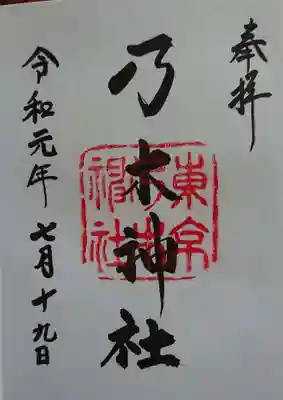 奉拝
乃木神社
東京乃木神社
令和元年七月十九日